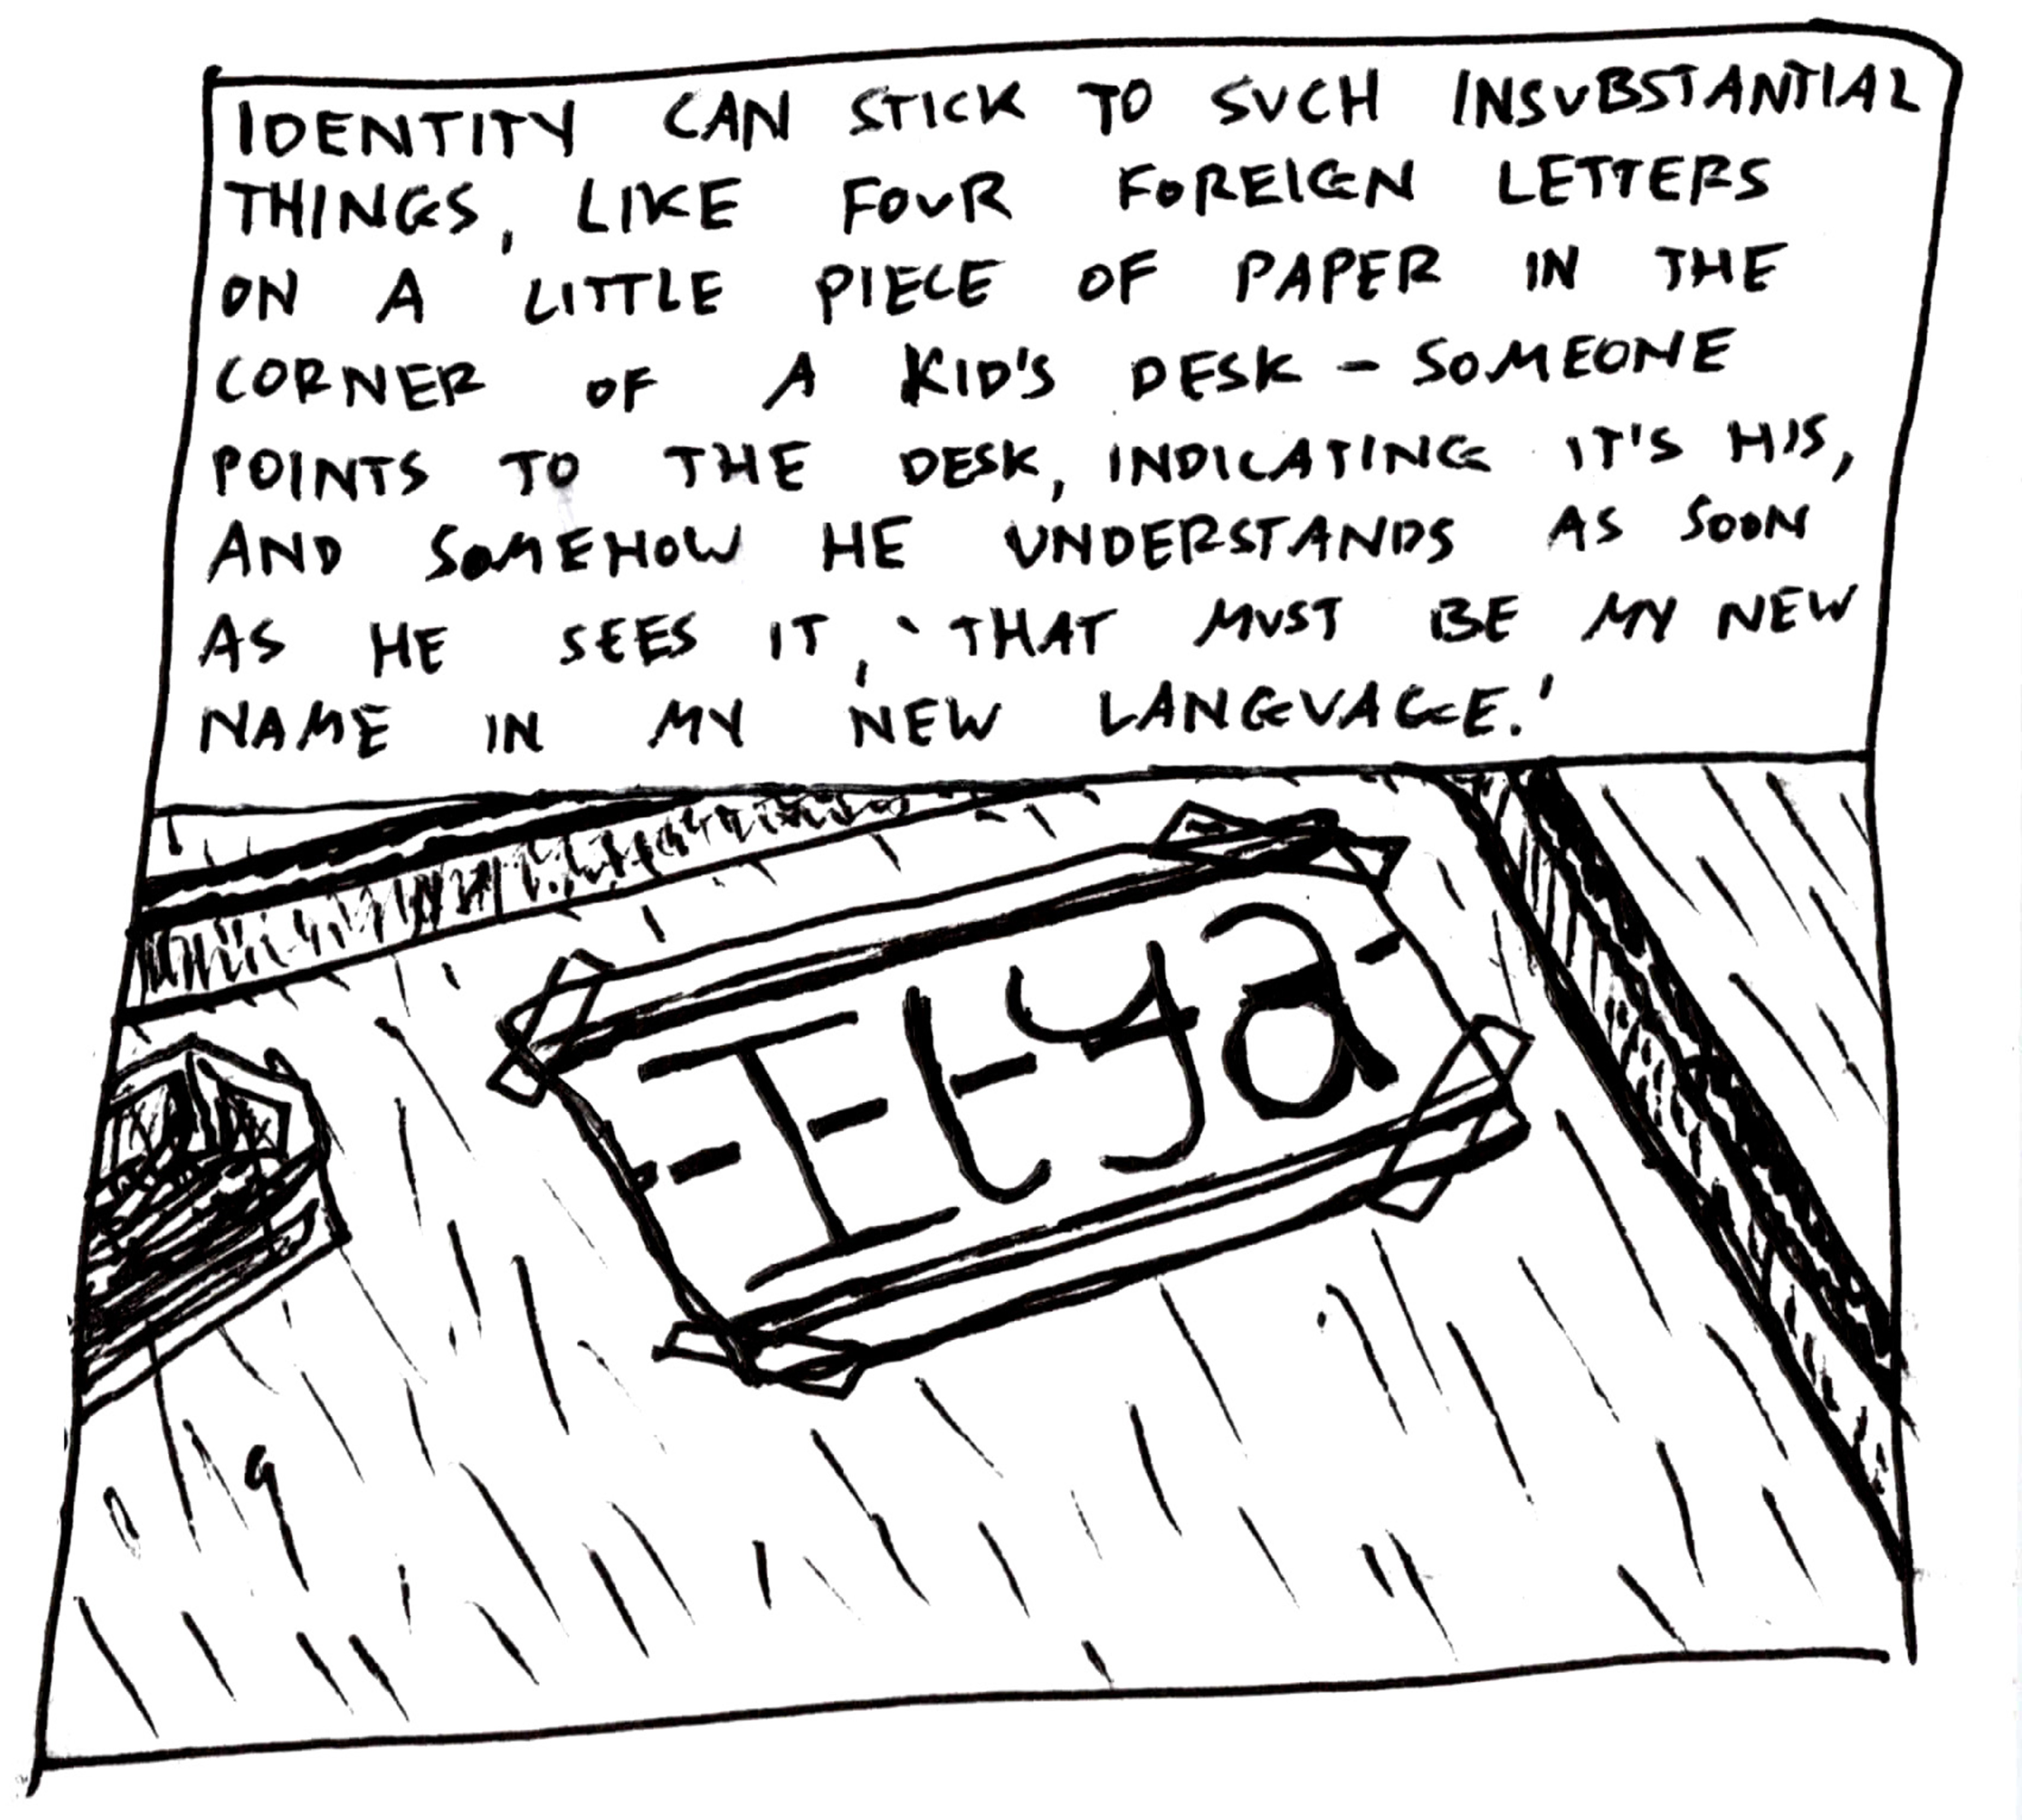 IDENTITY CAN STICK TO SUCH INSUBSTANTIAL
THINGS, LIKE FOUR FOREIGN LETTERS
ON A LITTLE PIECE OF PAPER IN THE
CORNER OF A KID'S DESK - SOMEONE
POINTS TO THE DESK, INDICATING IT'S HIS,
AND SOMEHOW HE UNDERSTANDS AS SOON
AS HE SEES IT, 'THAT MUST BE MY NEW
NAME IN MY NEW LANGUAGE.'
- I - t - y a -